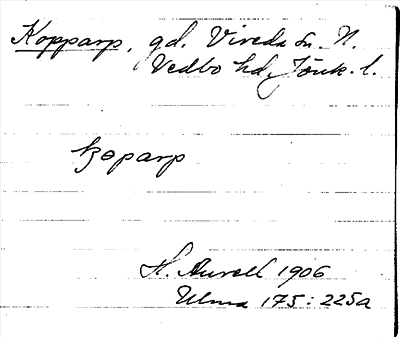 Kopparp, gd. Vireda sn. N.
Vedbo hd, Jönk. l.
koparp
H. Aurell 1906
Ulma 175: 225a